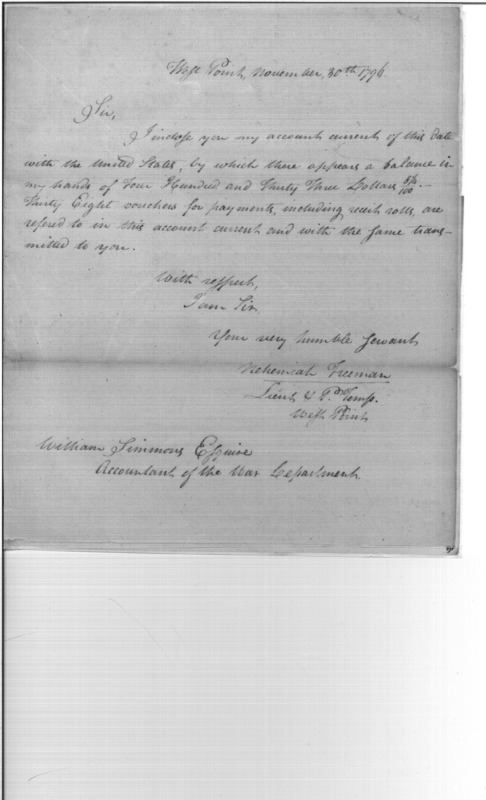 West Point, November, 30th 1796.
Sir,
I inclose you my account current of this date
with the United States, by which there appears a balance in
my hands of Four Hundred and Thirty Three Dollars /100.
Thirty Eight vouchers for payments, including receit rolls, are
refered to in this account current and with the same trans-
mitted to you.
With respect,
I am Sir
Your very humble servant
Nehemiah Freeman
Lieut & P. Temp.
West Point
William Simmons Esquire
Accountant of the War Department